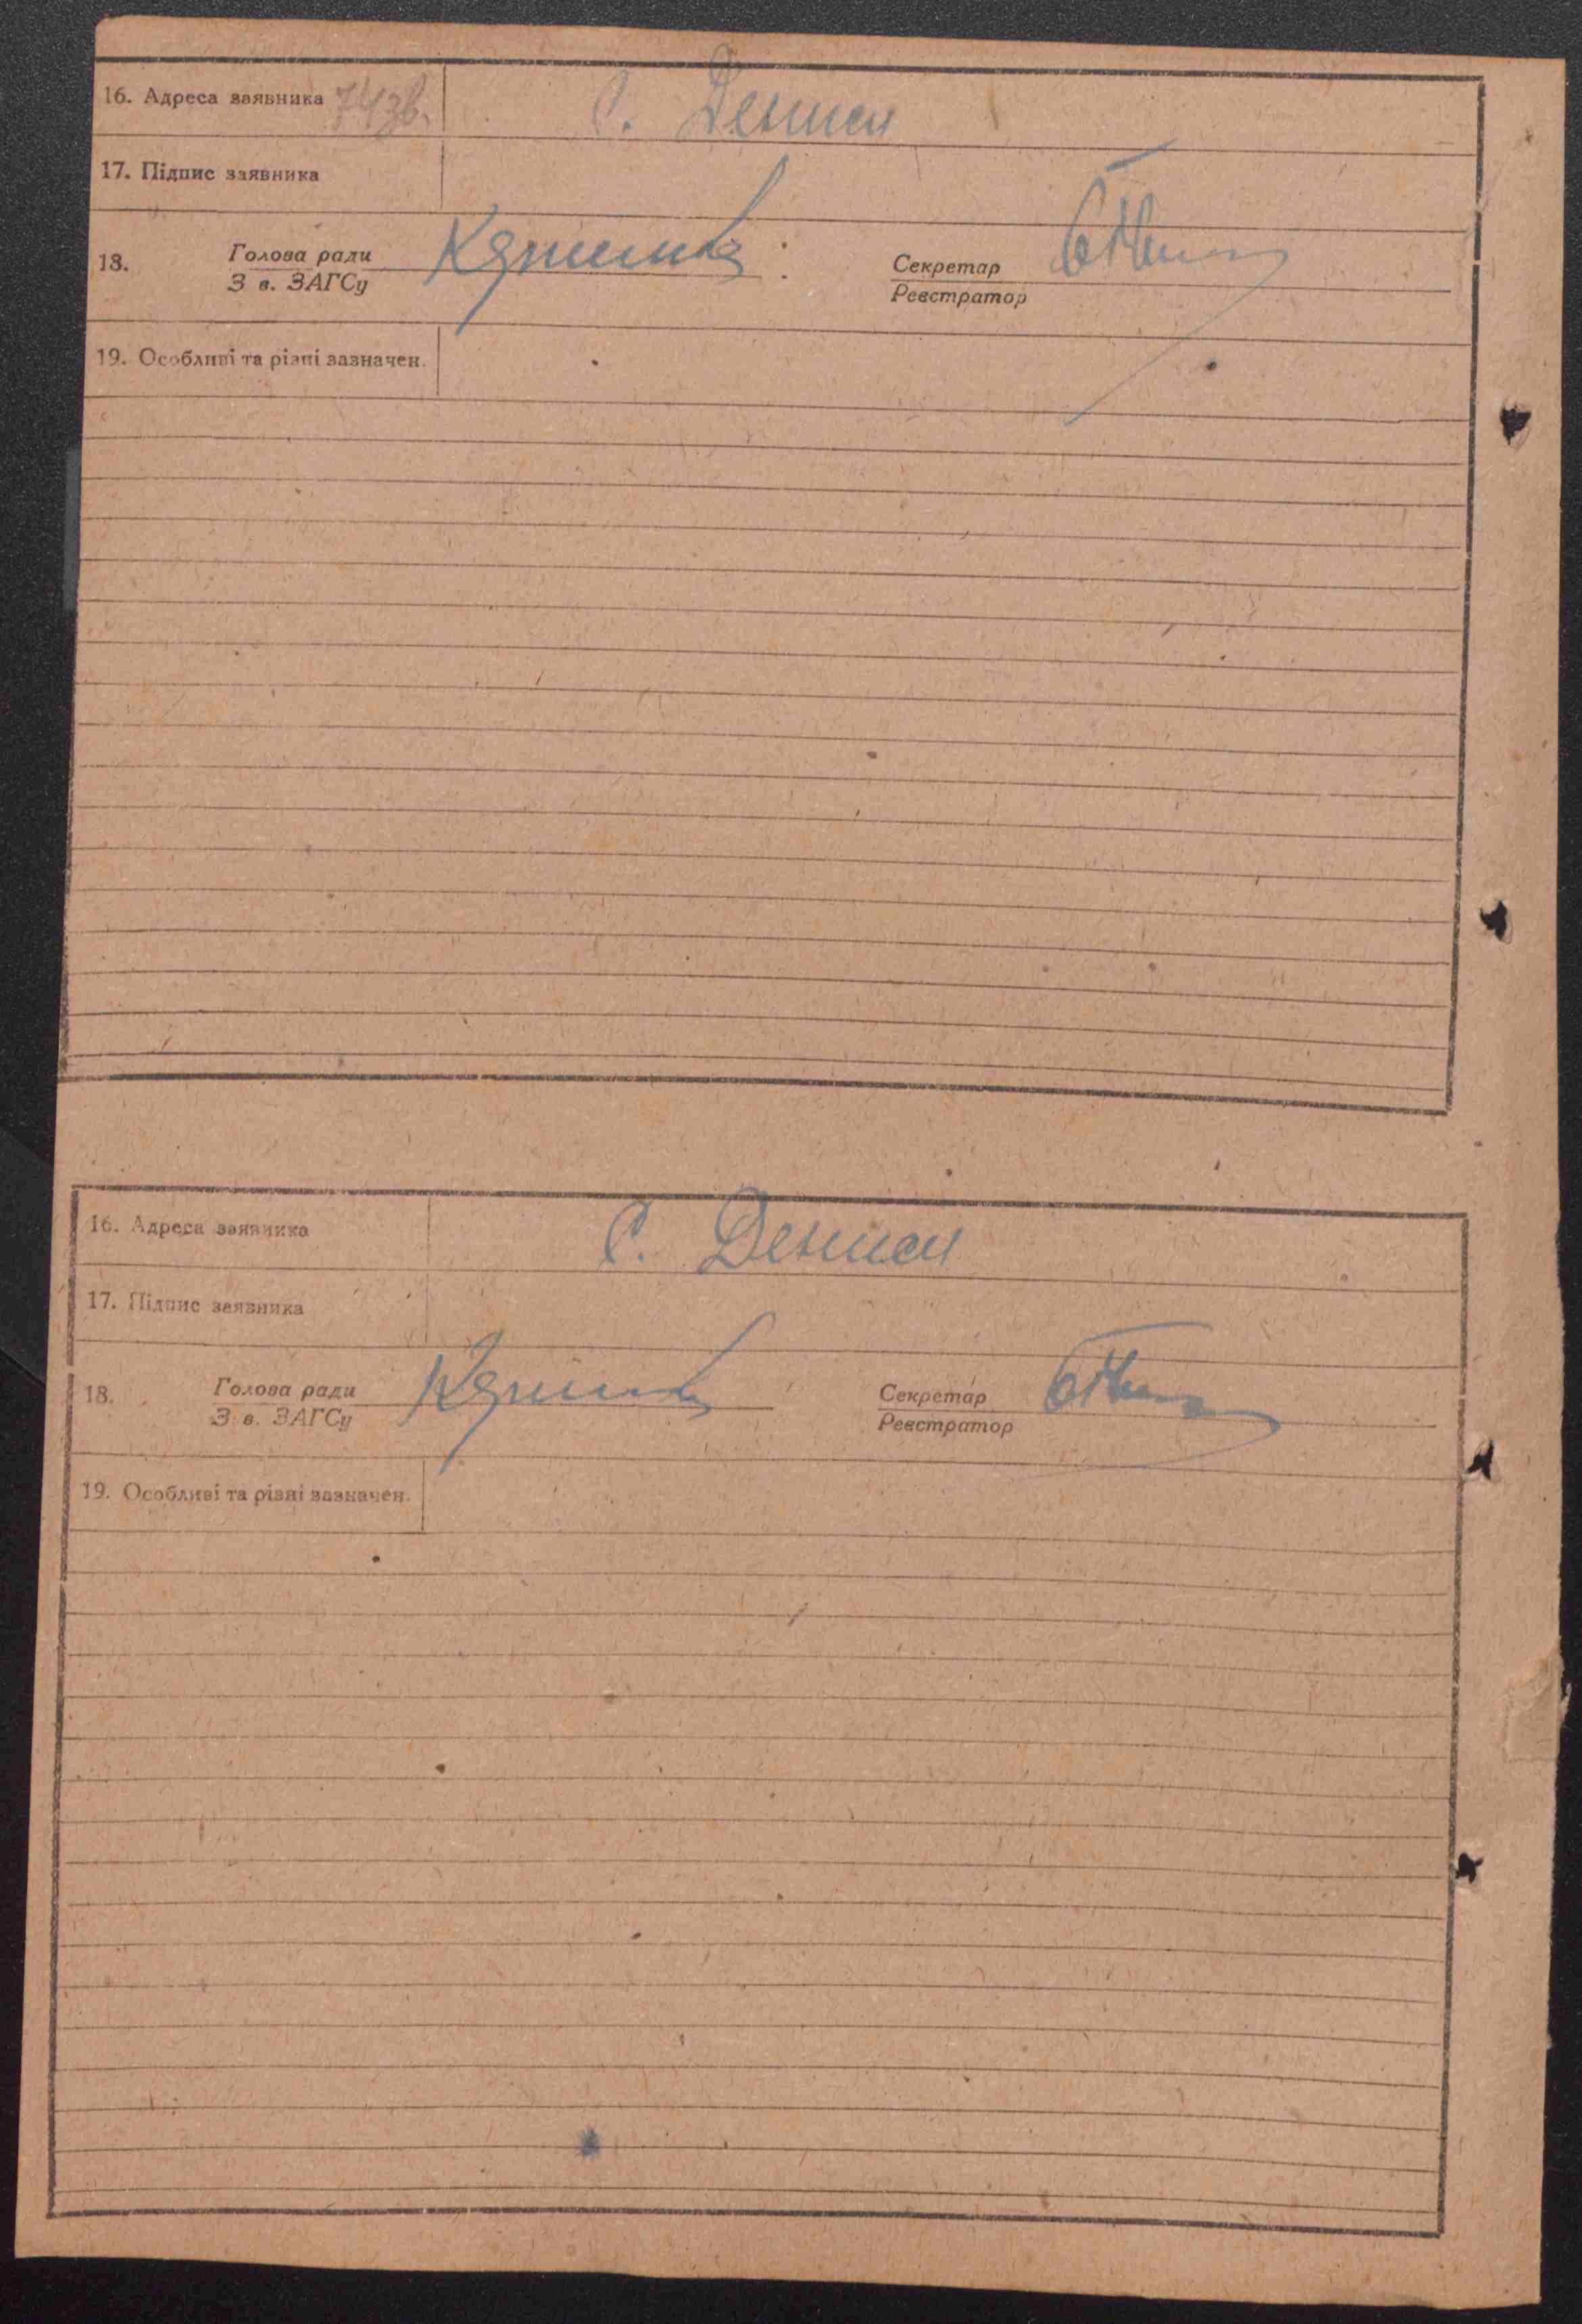 16. Адреса заявника 743в. С. Дениси
17. Підпис заявника
18. Голова ради Секретар
З в. ЗАГСу Реєстратор
19. Особливі та різні зазначен.
16. Адреса заявника С. Дениси
17. Підпис заявника
18. Голова ради Секретар
З в. ЗАГСу Реєстратор
19. Особливі та різні зазначен.